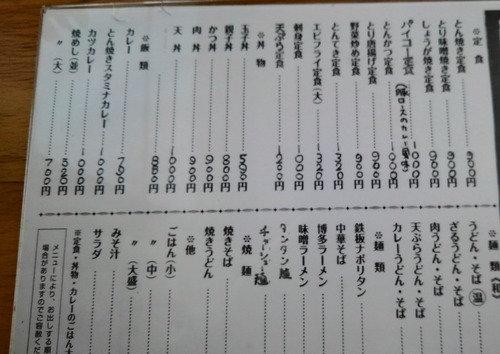 ※定食
とん焼き定食 900円
とり味噌焼き定食 900円
しょうが焼き定食 900円
パイコー定食 1000円
とんかつ定食 1000円
とり唐揚げ定食 900円
野菜炒め定食 900円
とんてき定食
エビフライ定食(大)
刺身定食
天ぷら定食
※丼物
玉子丼
親子丼 800円
かつ丼 900円
肉丼 900円
天丼 1000円
※飯類
カレー 750円
とん焼きスタミナカレー 1000円
カツカレー 1000円
焼めし(並)
〃(大) 700円
※麺類(和
うどん・そば 温
ざるうどん・そば
肉うどん・そば
天ぷらうどん・そば
カレーうどん・そば
※麺類
鉄板ナポリタン
中華そば
博多ラーメン
味噌ラーメン
タンタン麺
チャーシュー麺
※焼麺
焼きそば
焼きうどん
※他
ごはん(小)
〃(中)
〃(大盛)
みそ汁
サラダ
※定食・丼物・カレーのごはん大
メニューにより、お出しする順
場合がありますのでご容赦くだ